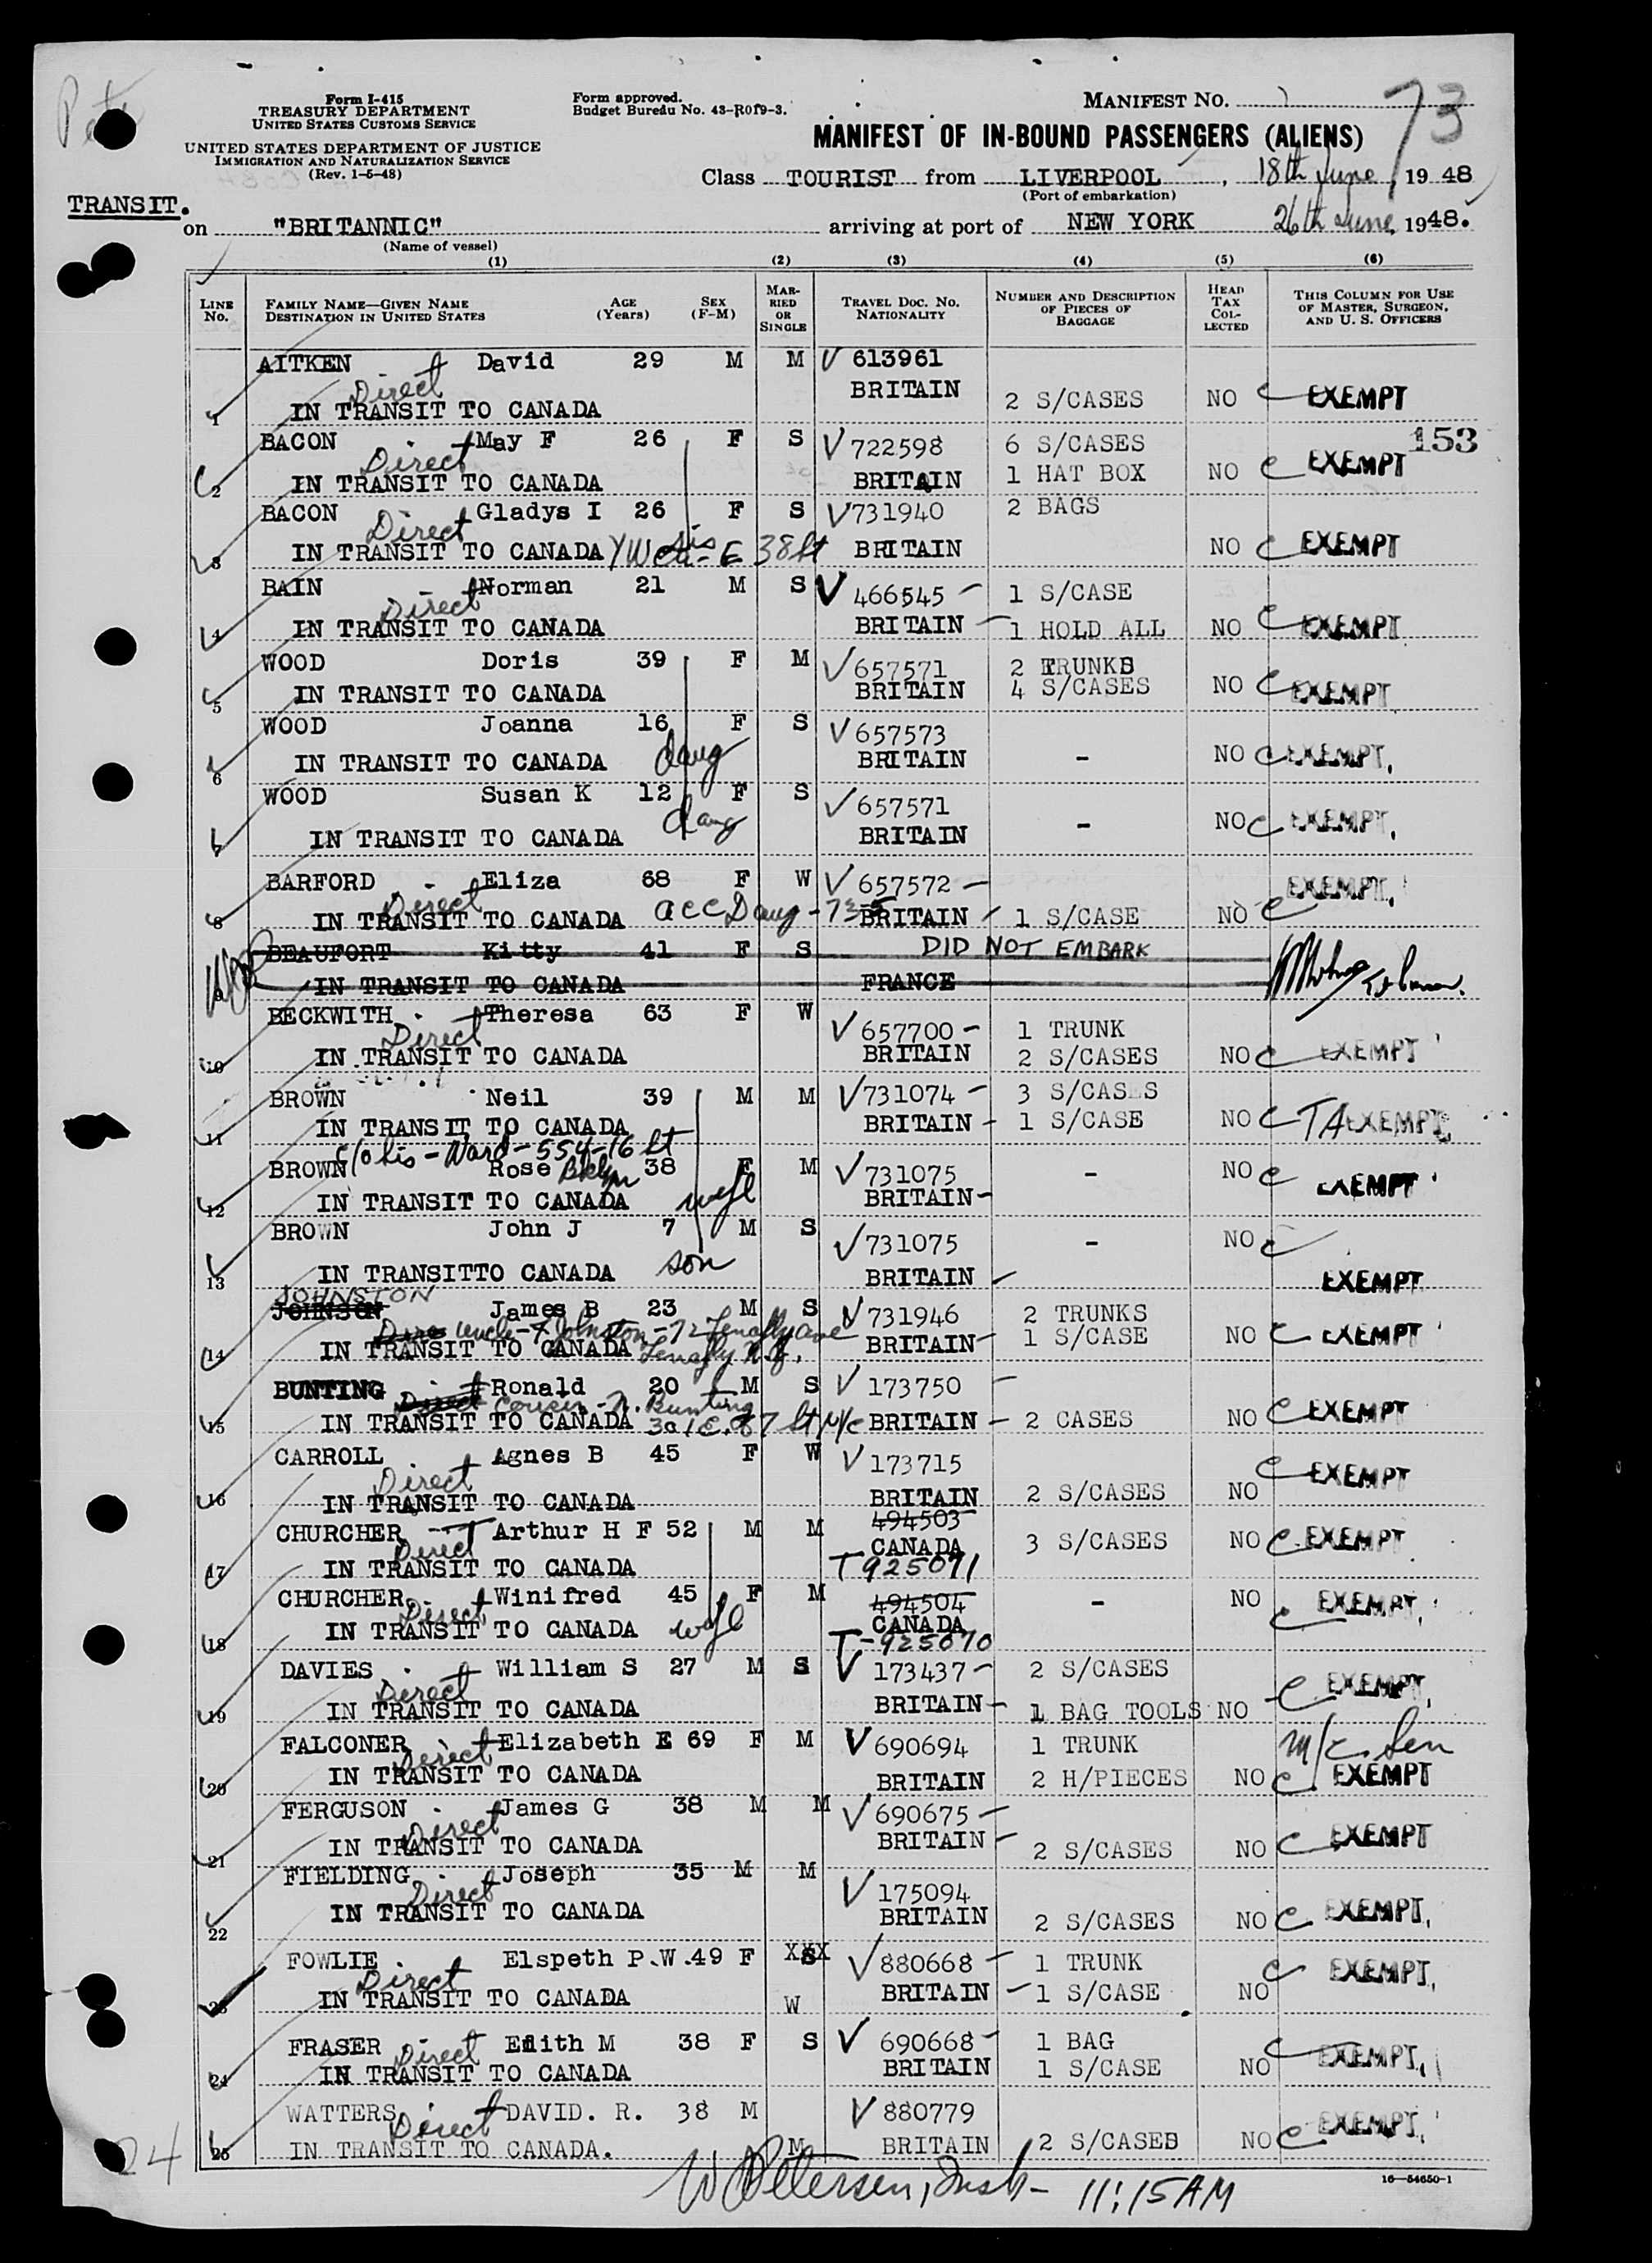 Form I-415
TREASURY DEPARTMENT
UNITED STATES CUSTOMS SERVICE
UNITED STATES DEPARTMENT OF JUSTICE
IMMIGRATION AND NATURALIZATION SERVICE
(Rev. 1-5-48)
Form approved.
Budget Bureau No. 43-R019-3.
MANIFEST NO.
73
MANIFEST OF IN-BOUND PASSENGERS (ALIENS)
Class TOURIST from LIVERPOOL, 18th June, 1948
(Port of embarkation)
TRANSIT.
on "BRITANNIC" arriving at port of NEW YORK 26th June, 1948.
(Name of vessel)
(1) (2) (3) (4) (5) (6)
LINE No. FAMILY NAME—GIVEN NAME DESTINATION IN UNITED STATES AGE (Years) SEX (F-M) MARRIED OR SINGLE TRAVEL DOC. NO. NATIONALITY NUMBER AND DESCRIPTION OF PIECES OF BAGGAGE HEAD TAX COLLECTED THIS COLUMN FOR USE OF MASTER, SURGEON, AND U. S. OFFICERS
AITKEN David 29 M M 613961
Direct BRITAIN
1 IN TRANSIT TO CANADA 2 S/CASES NO EXEMPT
153
BACON May F 26 F S 722598 6 S/CASES
Direct
2 IN TRANSIT TO CANADA BRITAIN 1 HAT BOX NO EXEMPT
BACON Gladys I 26 F S 731940 2 BAGS
Direct
3 IN TRANSIT TO CANADA sis YWCA - E 38 St BRITAIN NO EXEMPT
BAIN Norman 21 M S 466545 1 S/CASE
Direct
4 IN TRANSIT TO CANADA BRITAIN 1 HOLD ALL NO EXEMPT
WOOD Doris 39 F M 657571 2 TRUNKS
5 IN TRANSIT TO CANADA BRITAIN 4 S/CASES NO EXEMPT
WOOD Joanna 16 F S 657573
6 IN TRANSIT TO CANADA daug BRITAIN - NO EXEMPT.
WOOD Susan K 12 F S 657571
7 IN TRANSIT TO CANADA daug BRITAIN - NO EXEMPT.
BARFORD Eliza 68 F W 657572 EXEMPT.
Direct
8 IN TRANSIT TO CANADA acc Daug - 73-5 BRITAIN 1 S/CASE NO
BEAUFORT Kitty 41 F S DID NOT EMBARK
9 IN TRANSIT TO CANADA FRANCE
BECKWITH Theresa 63 F W 657700 1 TRUNK
Direct
10 IN TRANSIT TO CANADA BRITAIN 2 S/CASES NO EXEMPT
BROWN Neil 39 M M 731074 3 S/CASES
11 IN TRANSIT TO CANADA BRITAIN 1 S/CASE NO TA EXEMPT.
c/o sis - Ward - 554-16 St
BROWN Rose Bklyn 38 F M 731075 - NO EXEMPT
12 IN TRANSIT TO CANADA wife BRITAIN
BROWN John J 7 M S 731075 - NO
13 IN TRANSITTO CANADA son BRITAIN EXEMPT
JOHNSTON
JOHNSON James B 23 M S 731946 2 TRUNKS
Direct uncle - T Johnston - 72 Tenafly Ave
14 IN TRANSIT TO CANADA Tenafly N.J. BRITAIN 1 S/CASE NO EXEMPT
BUNTING Ronald 20 M S 173750
Direct cousin - N. Bunting
15 IN TRANSIT TO CANADA 301 E. 87 St NYC BRITAIN 2 CASES NO EXEMPT
CARROLL Agnes B 45 F W 173715 EXEMPT
Direct
16 IN TRANSIT TO CANADA BRITAIN 2 S/CASES NO
CHURCHER Arthur H F 52 M M 494503
Direct CANADA 3 S/CASES NO EXEMPT
17 IN TRANSIT TO CANADA T 925071
CHURCHER Winifred 45 F M 494504 - NO EXEMPT.
Direct CANADA
18 IN TRANSIT TO CANADA wife T-925070
DAVIES William S 27 M S 173437 2 S/CASES EXEMPT.
Direct
19 IN TRANSIT TO CANADA BRITAIN 1 BAG TOOLS NO
FALCONER Elizabeth E 69 F M 690694 1 TRUNK m/c. Sen
Direct
20 IN TRANSIT TO CANADA BRITAIN 2 H/PIECES NO EXEMPT
FERGUSON James G 38 M M 690675
Direct
21 IN TRANSIT TO CANADA BRITAIN 2 S/CASES NO EXEMPT
FIELDING Joseph 35 M M 175094
Direct
22 IN TRANSIT TO CANADA BRITAIN 2 S/CASES NO EXEMPT.
FOWLIE Elspeth P.W. 49 F XSX 880668 1 TRUNK EXEMPT.
Direct
23 IN TRANSIT TO CANADA W BRITAIN 1 S/CASE NO
FRASER Edith M 38 F S 690668 1 BAG
Direct
24 IN TRANSIT TO CANADA BRITAIN 1 S/CASE NO EXEMPT.
WATTERS DAVID. R. 38 M 880779
Direct
25 IN TRANSIT TO CANADA. M BRITAIN 2 S/CASES NO EXEMPT.
24
W Petersen, Insp - 11:15 AM
16—54650-1